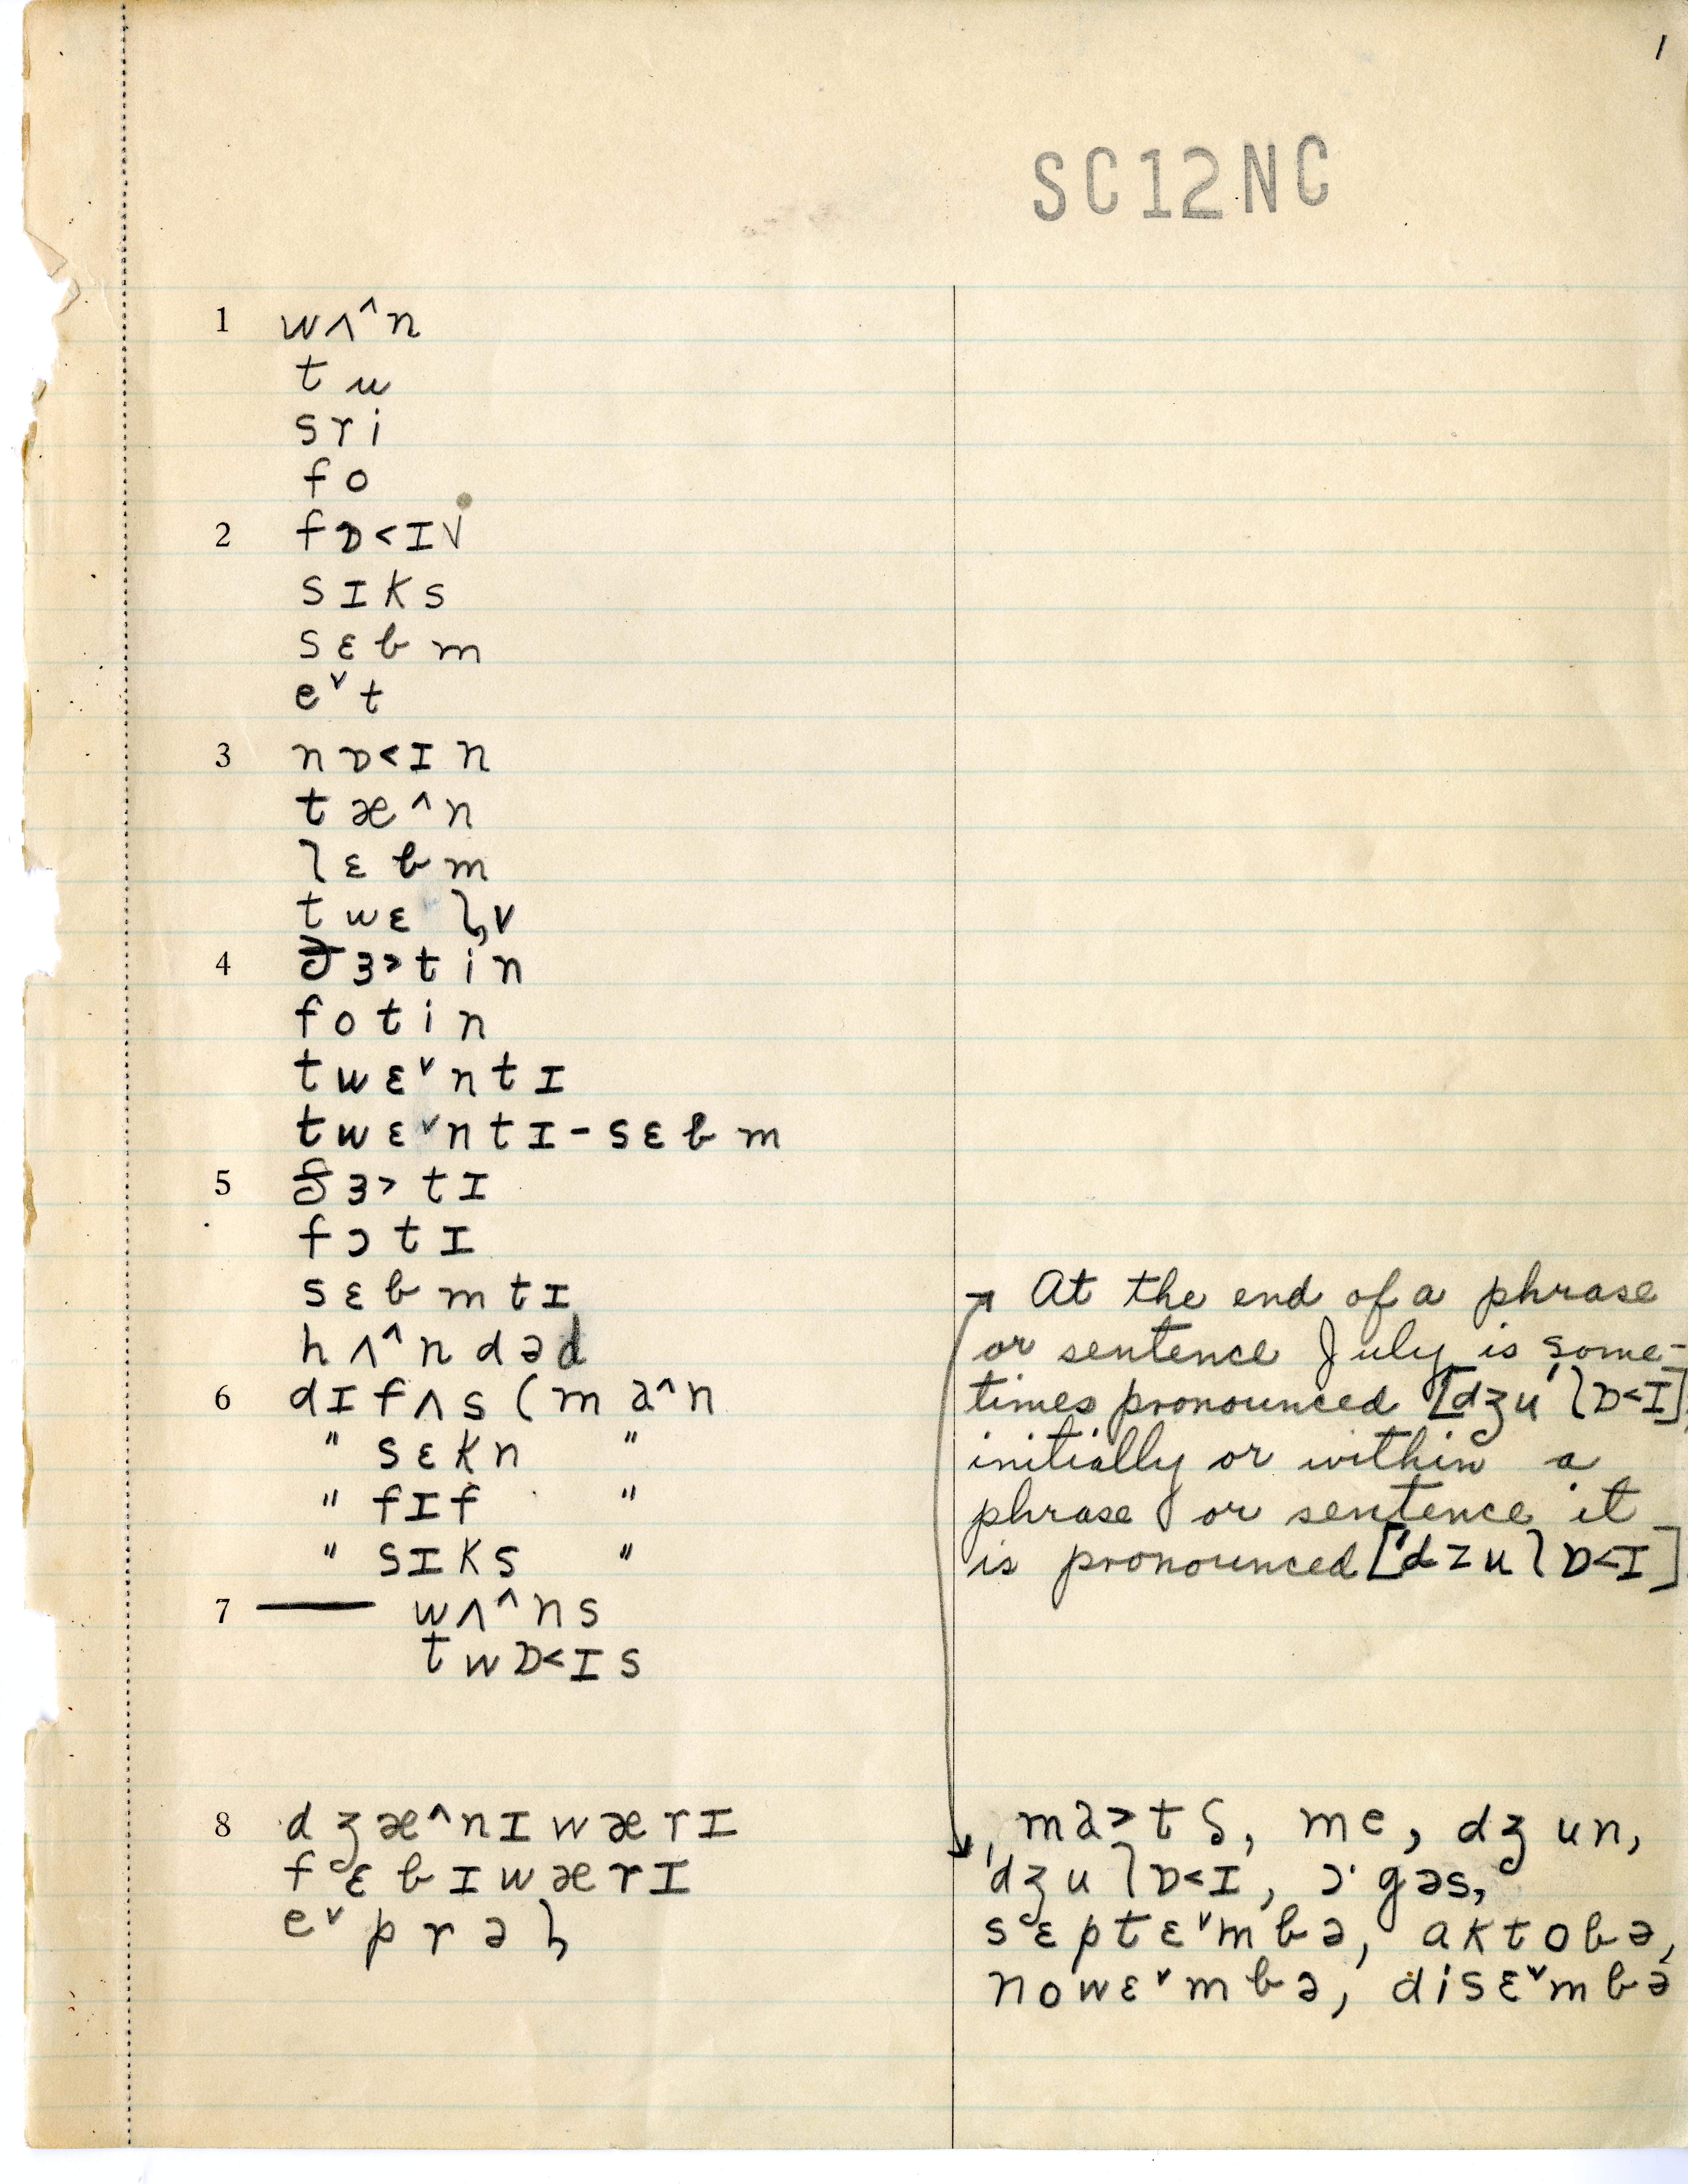 1
SC12NC
1 wʌ^n
t u
s r i
f o
2 f ɒ < ɪ v
s ɪ k s
s ɛ b m
e ˅ t
3 n ɒ < ɪ n
t æ ^ n
l ɛ b m
t w ɛ v
4 ɜ > t i n
f o t i n
t w ɛ ˅ n t ɪ
t w ɛ ˅ n t ɪ - s ɛ b m
5 ɜ > t ɪ
f ɔ t ɪ
s ɛ b m t ɪ
h ʌ ^ n d ə d
6 d ɪ f ʌ s ( m a ^ n
" s ɛ k n "
" f ɪ f "
" s ɪ k s "
7 — w ʌ ^ n s
t w ɒ < ɪ s
8 d ʒ æ ^ n ɪ w æ r ɪ
f ɛ b ɪ w æ r ɪ
e ˅ p r ə
→ At the end of a phrase
or sentence July is some-
times pronounced [dʒu ˈl ɒ < ɪ]
initially or within a
phrase or sentence it
is pronounced [ˈd ʒ u l ɒ < ɪ]
m a > t ʃ, m e, d ʒ u n,
ˈd ʒ u l ɒ < ɪ, ɔ · g ə s,
s ɛ p t ɛ ˅ m b ə, a k t o b ə,
n o w ɛ ˅ m b ə, d i s ɛ ˅ m b ə